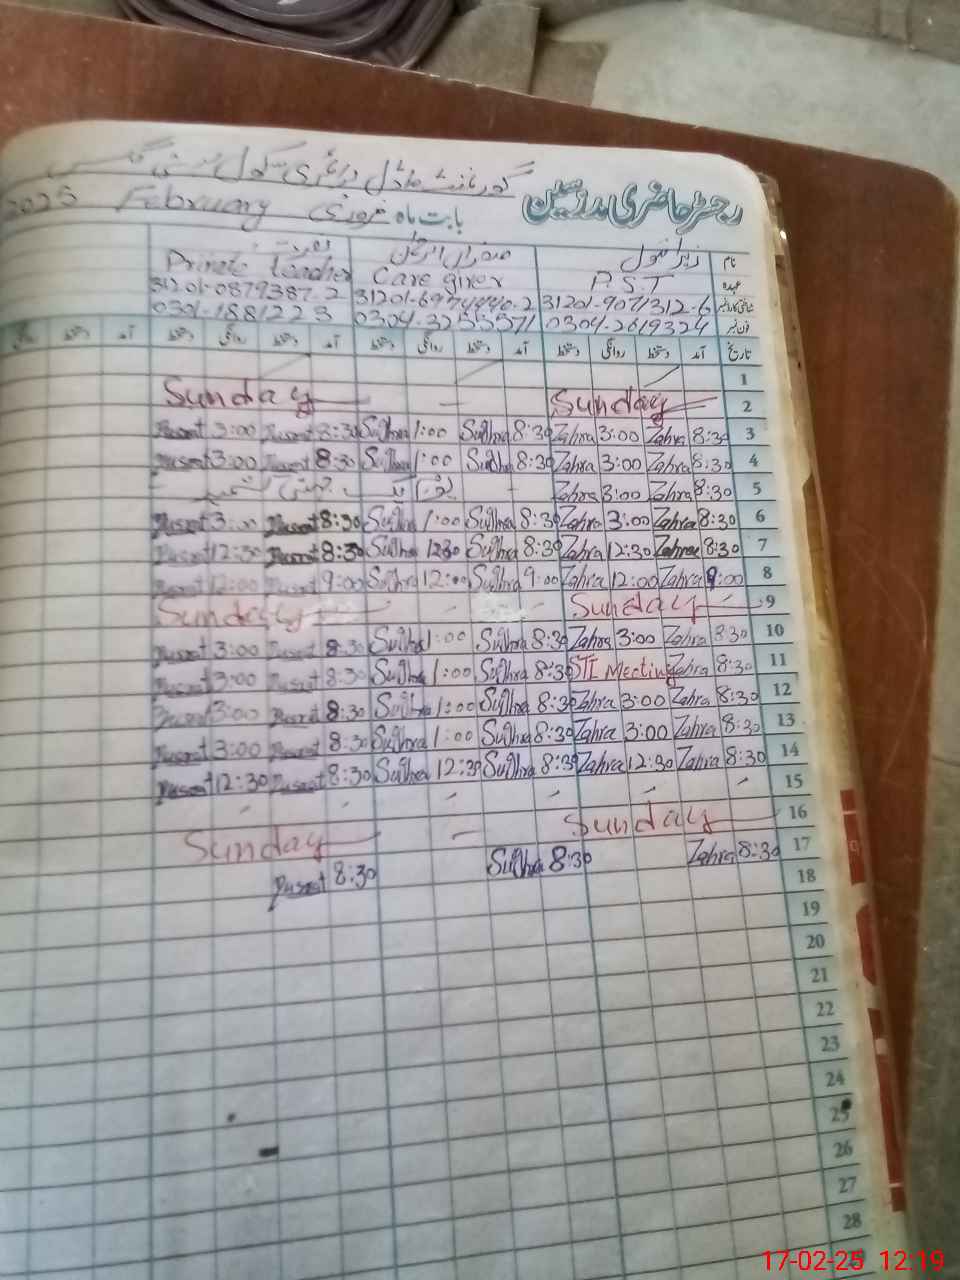 رجسٹر حاضری مدرسین
گورنمنٹ ماڈل پرائمری سکول
بابت ماہ فروری February 2025
نام
عہدہ P.S.T Care giver Private teacher
شناختی کارڈ نمبر 31201-9071312-6 31201-6974440-2 31201-0879387-2
فون نمبر 0304-2619324 0304-3255571 0301-1881223
تاریخ آمد دستخط روانگی دستخط آمد دستخط روانگی دستخط آمد دستخط روانگی دستخط آمد دستخط
1
2 Sunday Sunday
3 8:30 Zahra 3:00 Zahra 8:30 Sughra 1:00 Sughra 8:30 Nusrat 3:00 Nusrat
4 8:30 Zahra 3:00 Zahra 8:30 Sughra 1:00 Sughra 8:30 Nusrat 3:00 Nusrat
5 8:30 Zahra 3:00 Zahra
6 8:30 Zahra 3:00 Zahra 8:30 Sughra 1:00 Sughra 8:30 Nusrat 3:00 Nusrat
7 8:30 Zahra 12:30 Zahra 8:30 Sughra 1230 Sughra 8:30 Nusrat 12:30 Nusrat
8 9:00 Zahra 12:00 Zahra 9:00 Sughra 12:00 Sughra 9:00 Nusrat 12:00 Nusrat
9 Sunday Sunday
10 8:30 Zahra 3:00 Zahra 8:30 Sughra 1:00 Sughra 8:30 Nusrat 3:00 Nusrat
11 8:30 Zahra STI Meeting 8:30 Sughra 1:00 Sughra 8:30 Nusrat 3:00 Nusrat
12 8:30 Zahra 3:00 Zahra 8:30 Sughra 1:00 Sughra 8:30 Nusrat 3:00 Nusrat
13 8:30 Zahra 3:00 Zahra 8:30 Sughra 1:00 Sughra 8:30 Nusrat 3:00 Nusrat
14 8:30 Zahra 12:30 Zahra 8:30 Sughra 12:30 Sughra 8:30 Nusrat 12:30 Nusrat
15
16 Sunday Sunday
17 8:30 Zahra 8:30 Sughra 8:30 Nusrat
18
19
20
21
22
23
24
25
26
27
28
17-02-25 12:19